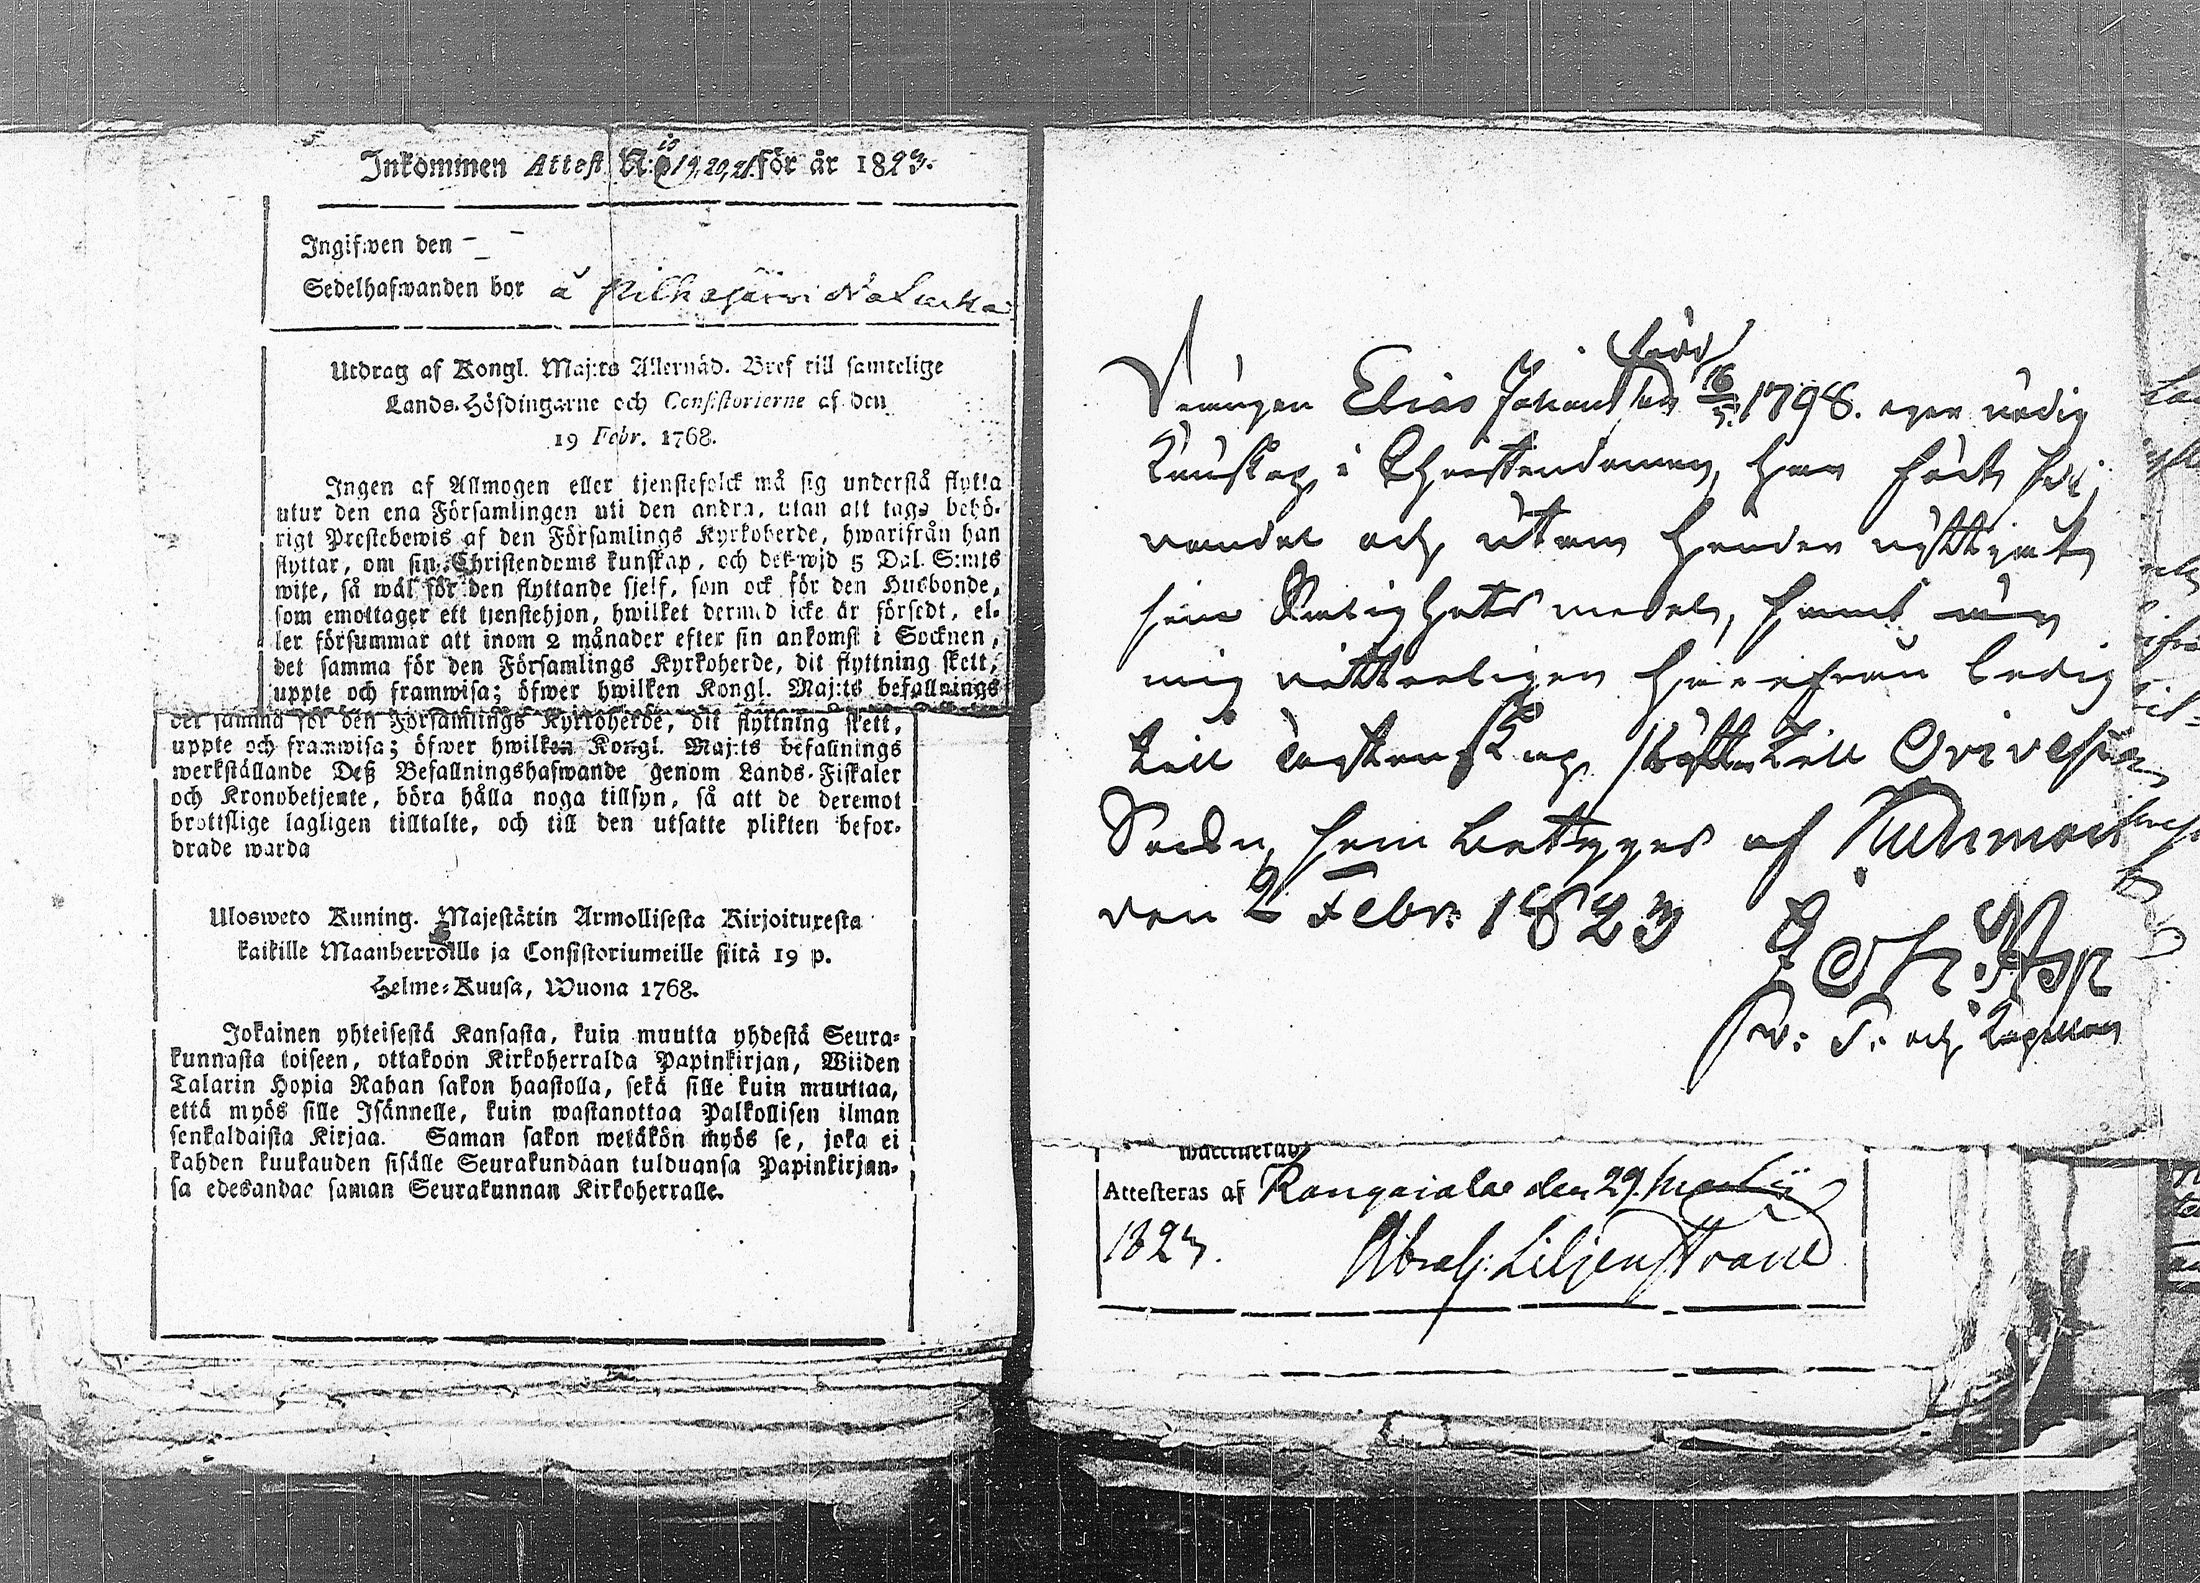 Inkommen Attest N:o 19, 20, 21. för år 1823.
Ingifwen den - -
Sedelhafwanden bor å Pilkajärvi
Utdrag af Kongl. Maj:ts Allernåd. Bref till samtelige
Lands-Höfdingarne och Consistorierne af den
19 Febr. 1768.
Ingen af Allmogen eller tjenstefolck må sig understå flytta
utur den ena Församlingen uti den andra, utan att taga behö-
rigt Prestebewis af den Församlings Kyrkoherde, hwarifrån han
flyttar, om sin Christendoms kunskap, och det wid 5 Dal. S:mts
wite, så wäl för den flyttande sjelf, som ock för den Husbonde,
som emottager ett tjenstehjon, hwilket dermed icke är försedt, el-
ler försummar att inom 2 månader efter sin ankomst i Socknen,
det samma för den Församlings Kyrkoherde, dit flyttning skett,
uppte och framwisa; öfwer hwilken Kongl. Maj:ts befallnings
det samma för den Församlings Kyrkoherde, dit flyttning skett,
uppte och framwisa; öfwer hwilken Kongl. Maj:ts befallnings
werkställande Deß Befallningshafwande genom Lands-Fiskaler
och Kronobetjente, böra hålla noga tillsyn, så att de deremot
brottslige lagligen tilltalte, och till den utsatte plikten befor-
drade warda
Ulosweto Kuning. Majestätin Armollisesta Kirjoituxesta
kaikille Maanherroille ja Consistoriumeille siitä 19 p.
Helme-Kuusa, Wuona 1768.
Jokainen yhteisestä Kansasta, kuin muutta yhdestä Seura-
kunnasta toiseen, ottakoon Kirkoherralda Papinkirjan, Wiiden
Talarin Hopia Rahan sakon haastolla, sekä sille kuin muuttaa,
että myös sille Isännelle, kuin wastanottaa Palkollisen ilman
senkaldaista Kirjaa. Saman sakon wetäkön myös se, joka ei
kahden kuukauden sisälle Seurakundaan tulduansa Papinkirjan-
sa edesandac saman Seurakunnan Kirkoherralle.
född
Drängen Elias Johansson 16/5 1798. eger nödig
Kunskap i Christendomen, har fördt
vandel och utan hinder nyttjat
sine Salighets medel, samt
mig vitterligen härifrån ledig
till Ecktenskap till Orivesi
Sockn, som betyges af Kuhmois
den 2 Febr: 1823
Joh: Asp
v: P: och Capellan
Attesteras af Kangasala den 29. Martii
1823.
Abrah: Liljenstrand